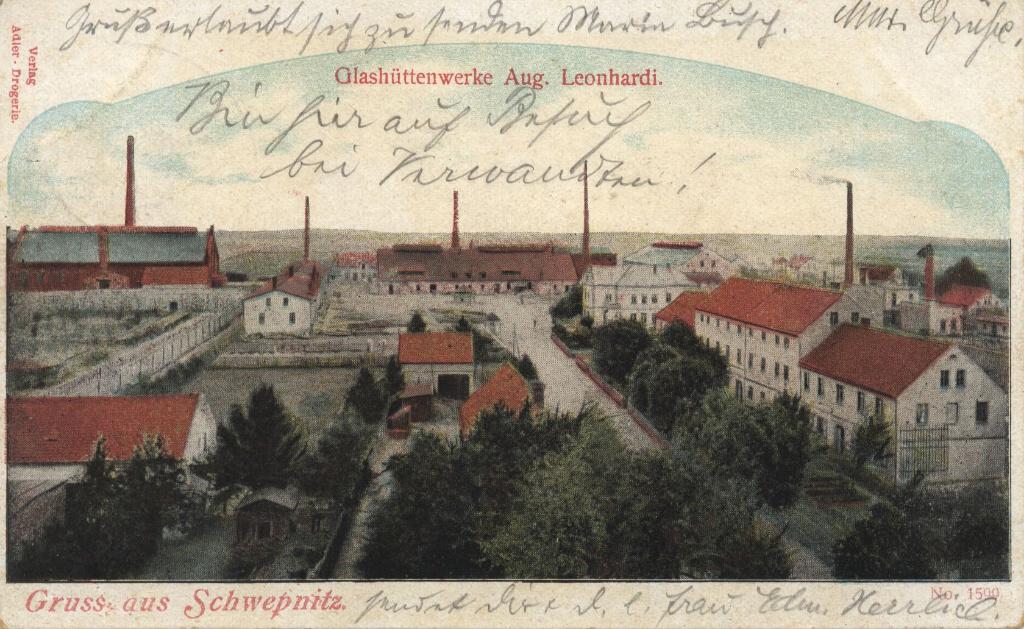 Gruß erlaubt sich zu senden Maria Busch.
Verlag
Adler-Drogerie.
Glashüttenwerke Aug. Leonhardi.
Bin hier auf Besuch
bei Verwandten!
Gruss aus Schwepnitz.
sendet Frau Herrlich.
No. 1590